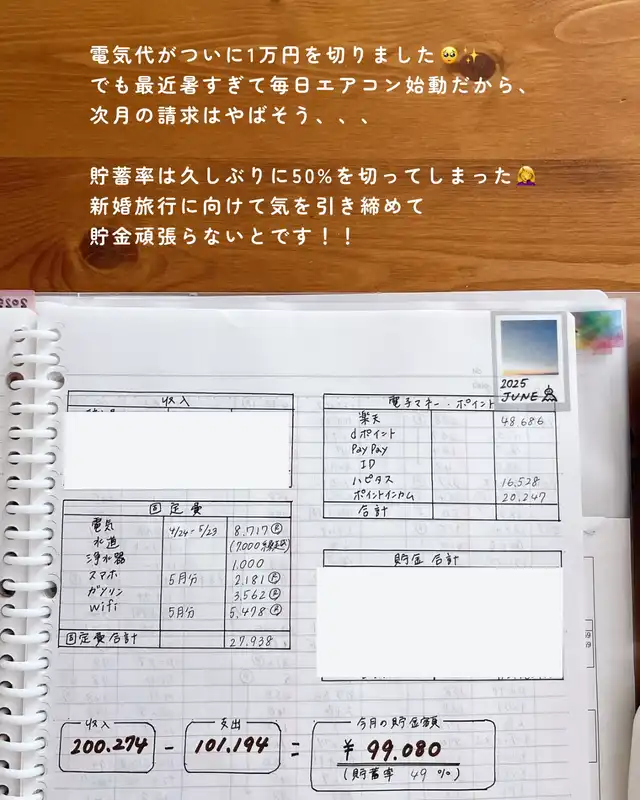 電気代がついに1万円を切りました🥺✨
でも最近暑すぎて毎日エアコン始動だから、
次月の請求はやばそう、、、
貯蓄率は久しぶりに50%を切ってしまった🤦‍♀️
新婚旅行に向けて気を引き締めて
貯金頑張らないとです！！
2025
JUNE
収入
電子マネー・ポイント
楽天 48.686
dポイント
PayPay
ID
ハピタス 16.528
ポイントインカム 20.247
合計
固定費
電気 4/24-5/23 8.717
水道 (7,000繰越)
浄水器 1.000
スマホ 5月分 2.181
ガソリン 3.562
wifi 5月分 5.478
固定費合計 27.938
貯金 合計
収入 支出 今月の貯金額
200.274 - 101.194 = ¥ 99.080
(貯蓄率 49 %)